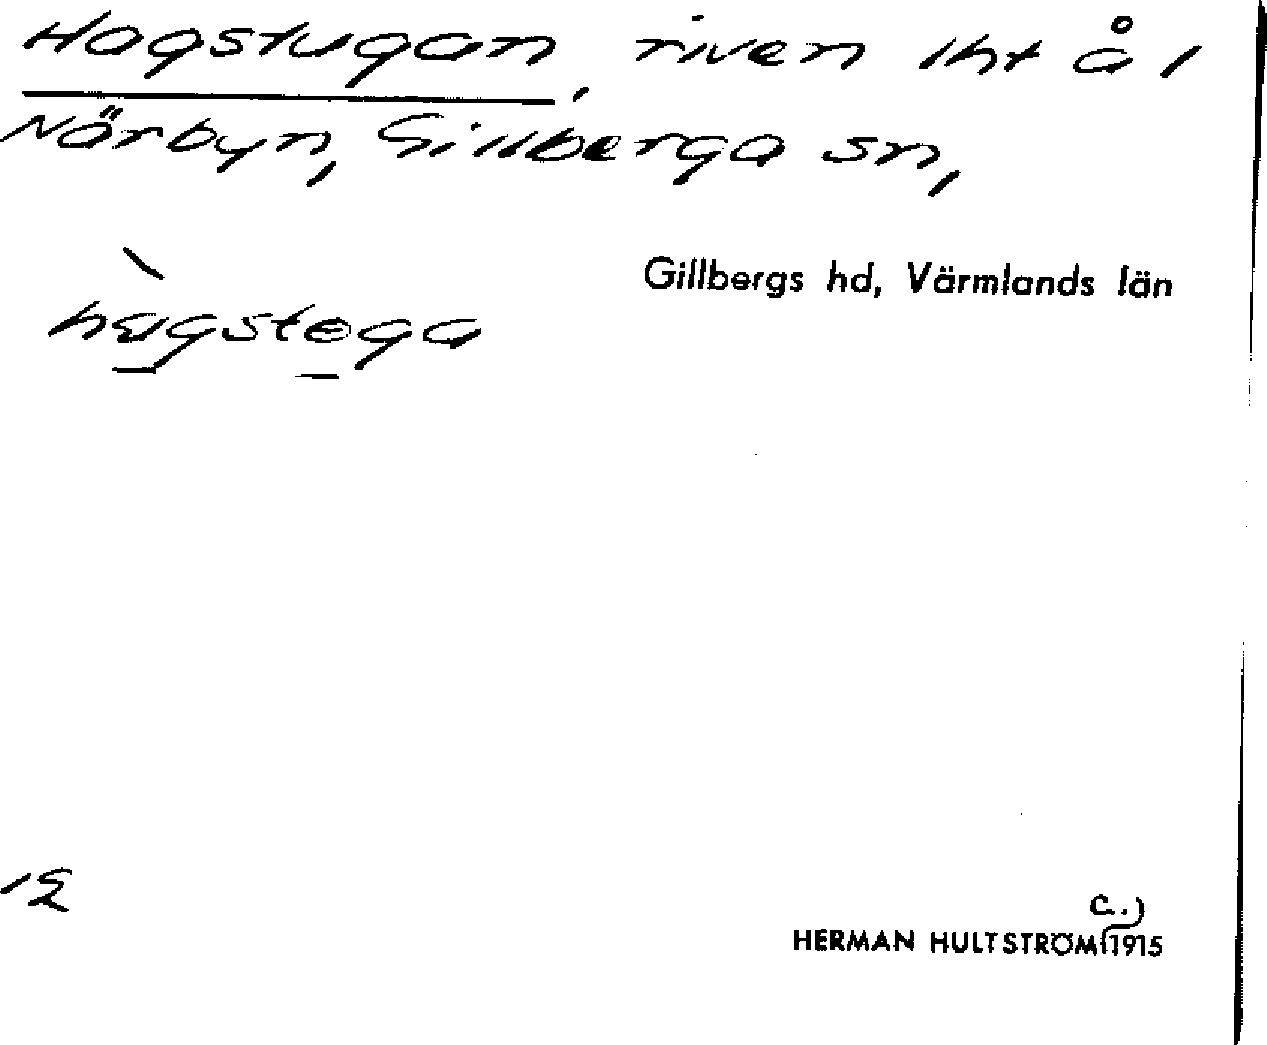 Hagstugan, riven lht å 1
Närbyn, Gillberga sn,
Gillbergs hd, Värmlands län
hɑgstɵga
12
c.)
HERMAN HULTSTRÖM (1915